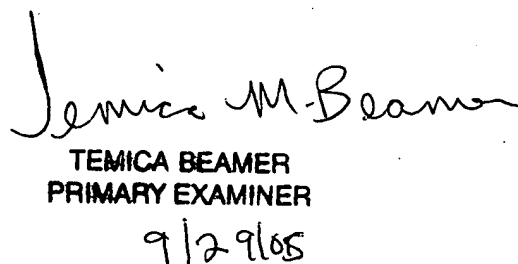 Temica M. Beamer
TEMICA BEAMER
PRIMARY EXAMINER
9/29/05